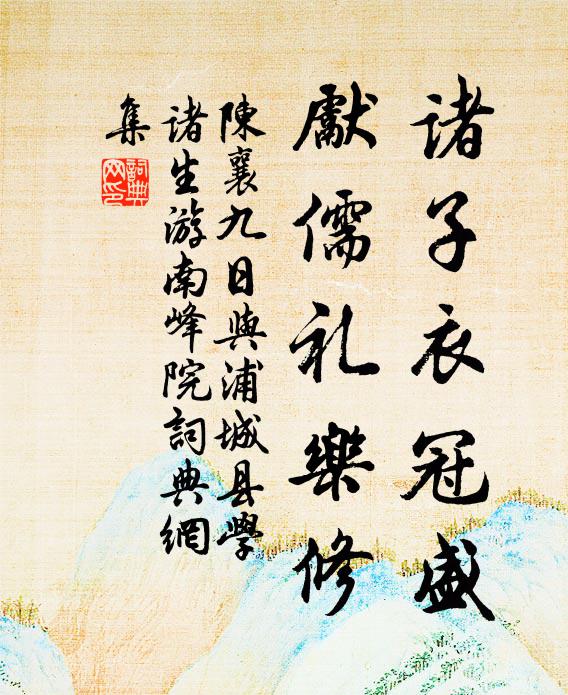 诸子衣冠盛
獻儒礼樂修
陳襄九日與浦城县學
诸生游南峰院詞典網
集
詞典網印